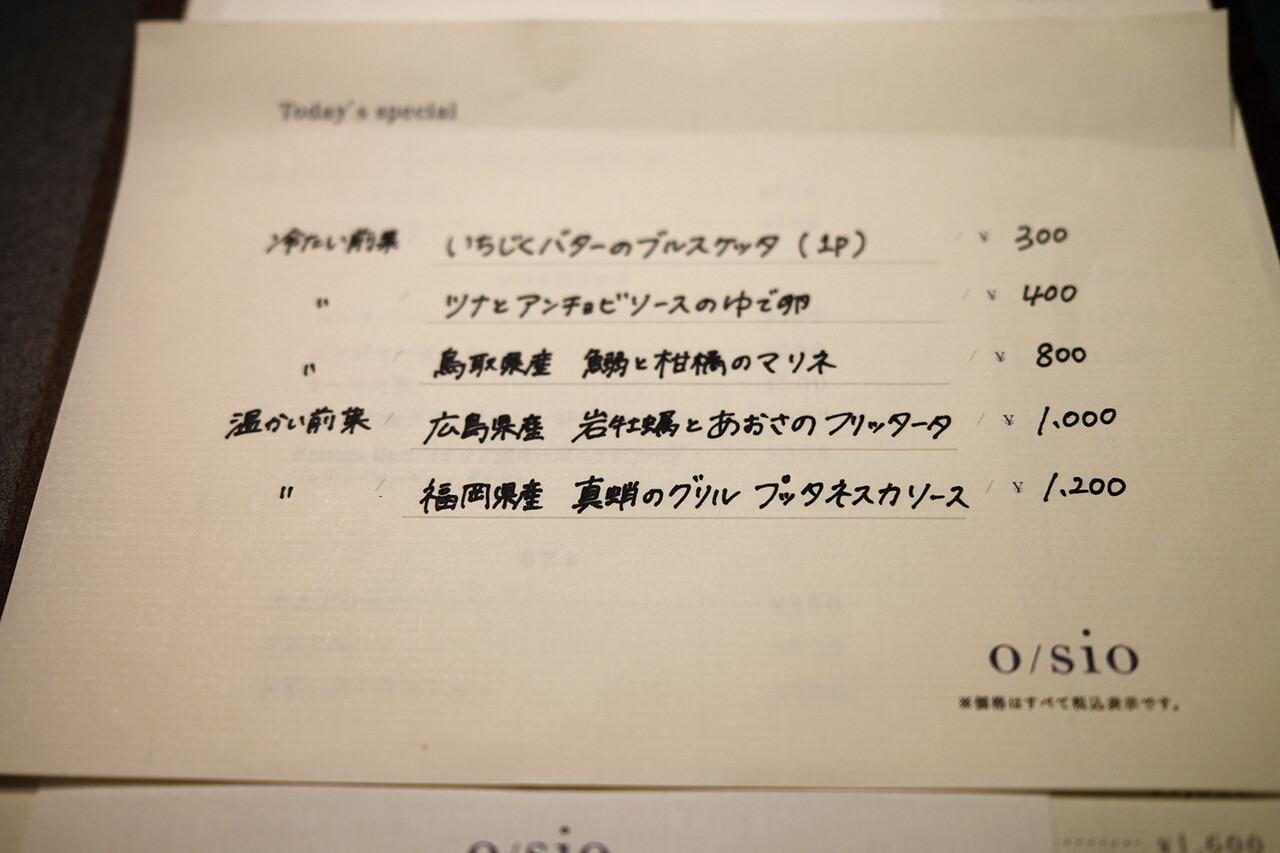 Today's special
冷たい前菜 いちじくバターのブルスケッタ (1P) / ¥ 300
〃 / ツナとアンチョビソースのゆで卵 / ¥ 400
〃 / 鳥取県産 鰯と柑橘のマリネ / ¥ 800
温かい前菜 / 広島県産 岩牡蠣とあおさのフリッタータ / ¥ 1.000
〃 / 福岡県産 真蛸のグリル プッタネスカソース / ¥ 1.200
o/sio
※価格はすべて税込表示です。
o/sio
¥1,600